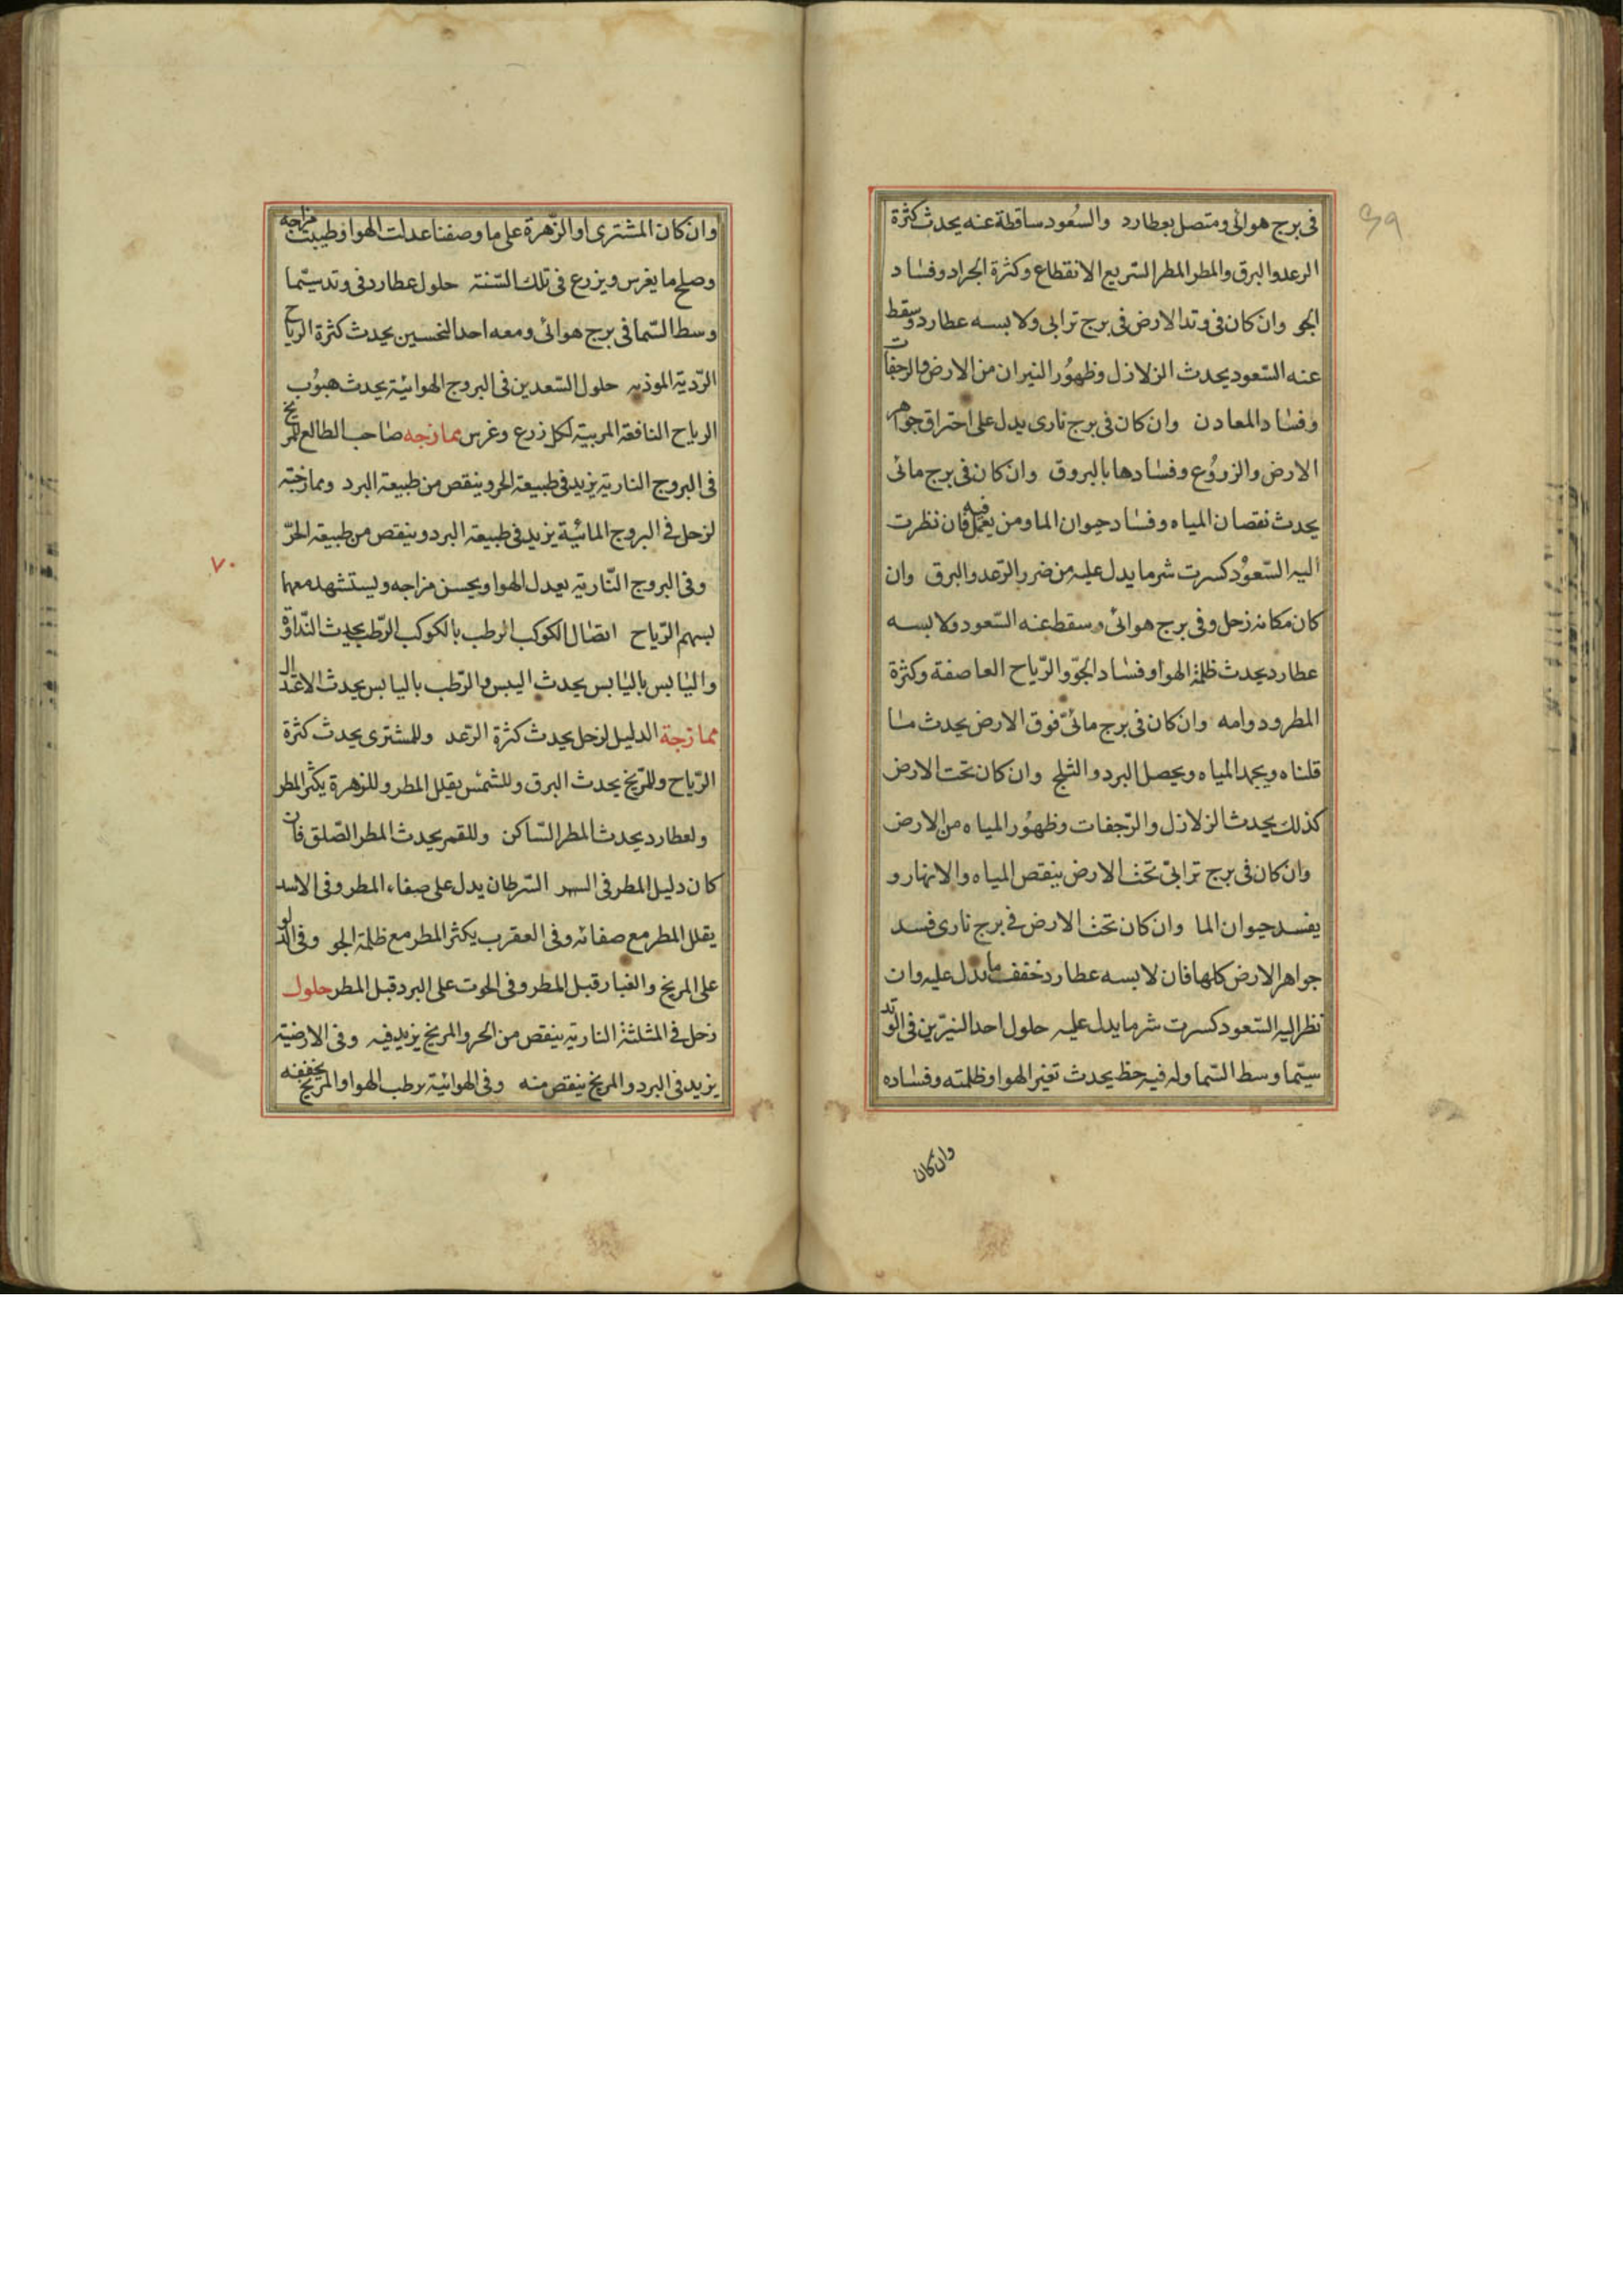 ٦٩
فى برج هوائى ومتصل بعطارد والسعود ساقطة عنه يحدث كثرة
الرعد والبرق والمطر المطر السّريع الانقطاع وكثرة الجراد وفساد
الجو وان كان فى وتد الارض فى برج ترابى ولابسه عطارد وسقط
عنه السّعود يحدث الزلازل وظهور النيران من الارض والرجفات
وفساد المعادن وان كان فى برج نارى يدل على احتراق جواهر
الارض والزروُع وفسادها بالبروق وان كان فى برج مائى
يحدث نقصان المياه وفساد حيوان الما ومن يعمل فيه فان نظرت
اليه السّعوُد كسرت شر ما يدل عليه من ضرر الرّعد والبرق وان
كان مكانه زحل وفى برج هوائى وسقط عنه السّعود ولابسه
عطارد يحدث ظلمة الهوا وفساد الجوّ والرّياح العاصفة وكثرة
المطر ودوامه وان كان فى برج مائىّ فوق الارض يحدث ما
قلناه ويجمد المياه ويحصل البرد والثلج وان كان تحت الارض
كذلك يحدث الزلازل والرّجفات وظهوُر المياه من الارض
وان كان فى برج ترابىّ تحت الارض ينقص المياه والانهار و
يفسد حيوان الما وان كان تحت الارض فى برج نارى فسد
جواهر الارض كلها فان لابسه عطارد خفف ما يدل عليه وان
نظر اليه السّعود كسرت شر ما يدل عليه حلول احد النيّرين فى الوتد
سيّما وسط السّما وله فيه حظ يحدث تغير الهوا وظلمته وفساده
وان كان
وان كان المشترى او الزّهرة على ما وصفنا عدلت الهوا وطيبت مزاجه
وصلح ما يغرس ويزرع فى تلك السّنة حلول عطارد فى وتد سيّما
وسط السّما فى برج هوائى ومعه احد النحسين يحدث كثرة الرياح
الرّديّة الموذيه حلول السّعدين فى البروج الهوائيّة يحدث هبوُب
الرياح النافعة المربيّة لكل زرع وغرس ممازجه صاحب الطالع للمريخ
فى البروج الناريّة يزيد فى طبيعة الحر وينقص من طبيعة البرد وممازجته
لزحل فى البروج المائيّة يزيد فى طبيعة البرد وينقص من طبيعة الحرّ
٧٠
وفى البروج النّاريّة يعدل الهوا ويحسن مزاجه وليستشهد معهما
بسهم الرّياح اتصال الكوكب الرطب بالكوكب الرّطب يحدث النّداوة
واليابس باليابس يحدث اليبس والرّطب باليابس يحدث الاعتدال
ممازجة الدليل لزحل يحدث كثرة الرّعد وللمشترى يحدث كثرة
الرّياح وللمرّيخ يحدث البرق وللشّمس يقلل المطر وللزهرة يكثر المطر
ولعطارد يحدث المطر السّاكن وللقمر يحدث المطر الصّلق فان
كان دليل المطر فى السّرطان يدل على صفاء المطر وفى الاسد
يقلل المطر مع صفائه وفى العقرب يكثر المطر مع ظلمة الجو وفى الدلو
على المريخ والغبار قبل المطر وفى الحوت على البرد قبل المطر حلول
زحل فى المثلثة الناريّة ينقص من الحر والمريخ يزيد فيه وفى الارضيّة
يزيد فى البرد والمريخ ينقص منه وفى الهوائيّة يرطب الهوا والمريخ يجففه